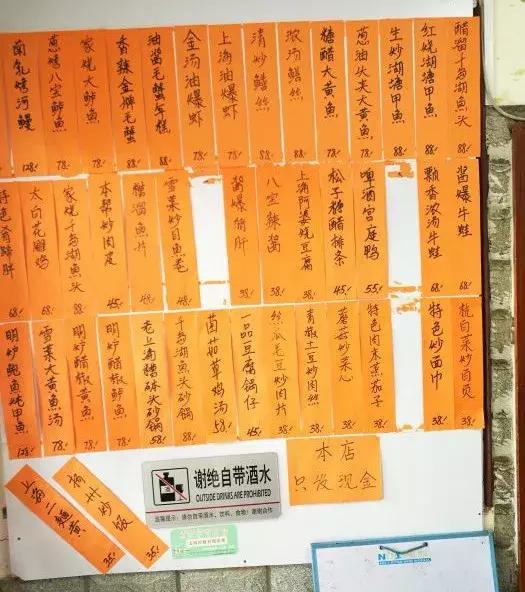 醋溜千岛湖鱼头 88/
红烧湖塘甲鱼 88/
生炒湖塘甲鱼 88/
葱油大黄鱼 78/
糖醋大黄鱼 78/
浓汤鳝丝 88/
清炒鳝丝 88/
上海油爆虾 78/
金汤油爆虾 88/
油酱毛蟹年糕 88/
香辣金牌毛蟹 88/
家烧大鲈鱼 78/
葱烤八宝鲈鱼 78/
南乳烤河鳗 128/
酱爆牛蛙 68/
飘香浓汤牛蛙 68/
啤酒宫庭鸭 55/
松子糖醋排条 45/
上海阿婆烧豆腐 38/
八宝辣酱 38/
酱爆猪肝 38/
雪菜炒目鱼卷 48/
糟溜鱼片 48/
本帮炒肉皮 45/
家烧千岛湖鱼头 88/
太白花雕鸡 68/
杭白菜炒百页 38/
特色炒面巾 38/
特色肉末蒸茄子 38/
蘑菇炒菜心 38/
青椒土豆炒肉丝 38/
丝瓜毛豆炒肉片 38/
一品豆腐锅仔 45/
菌菇草鸡汤 58/
千岛湖鱼头砂锅 88/
老上海糟钵头砂锅 58/
明炉醋椒鲈鱼 78/
明炉醋椒黄鱼 78/
雪菜大黄鱼汤 78/
明炉鲍鱼炖甲鱼 128/
上海二面黄 35/
扬州炒饭 35/
本店
只收现金
谢绝自带酒水
OUTSIDE DRINKS ARE PROHIBITED
温馨提示:请勿自带酒水、饮料、食物!谢谢合作